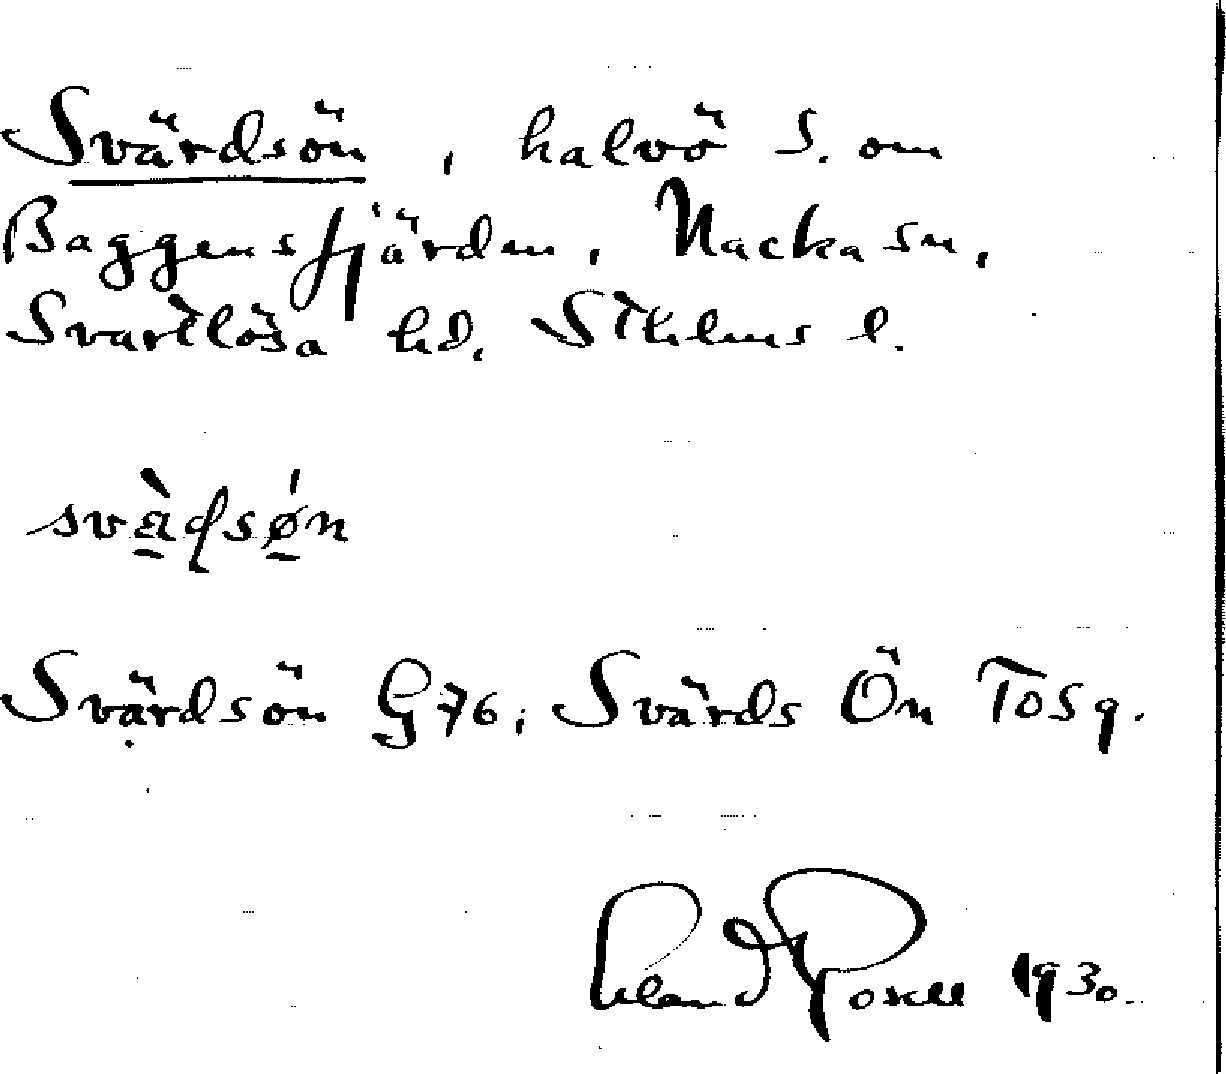 Svärdsön, halvö S. om
Baggensfjärden, Nacka sn,
Svartlösa hd, Sthlms l.
svàḍsǿn
Svärdsön G76; Svärds Ön Tosq.
1930.